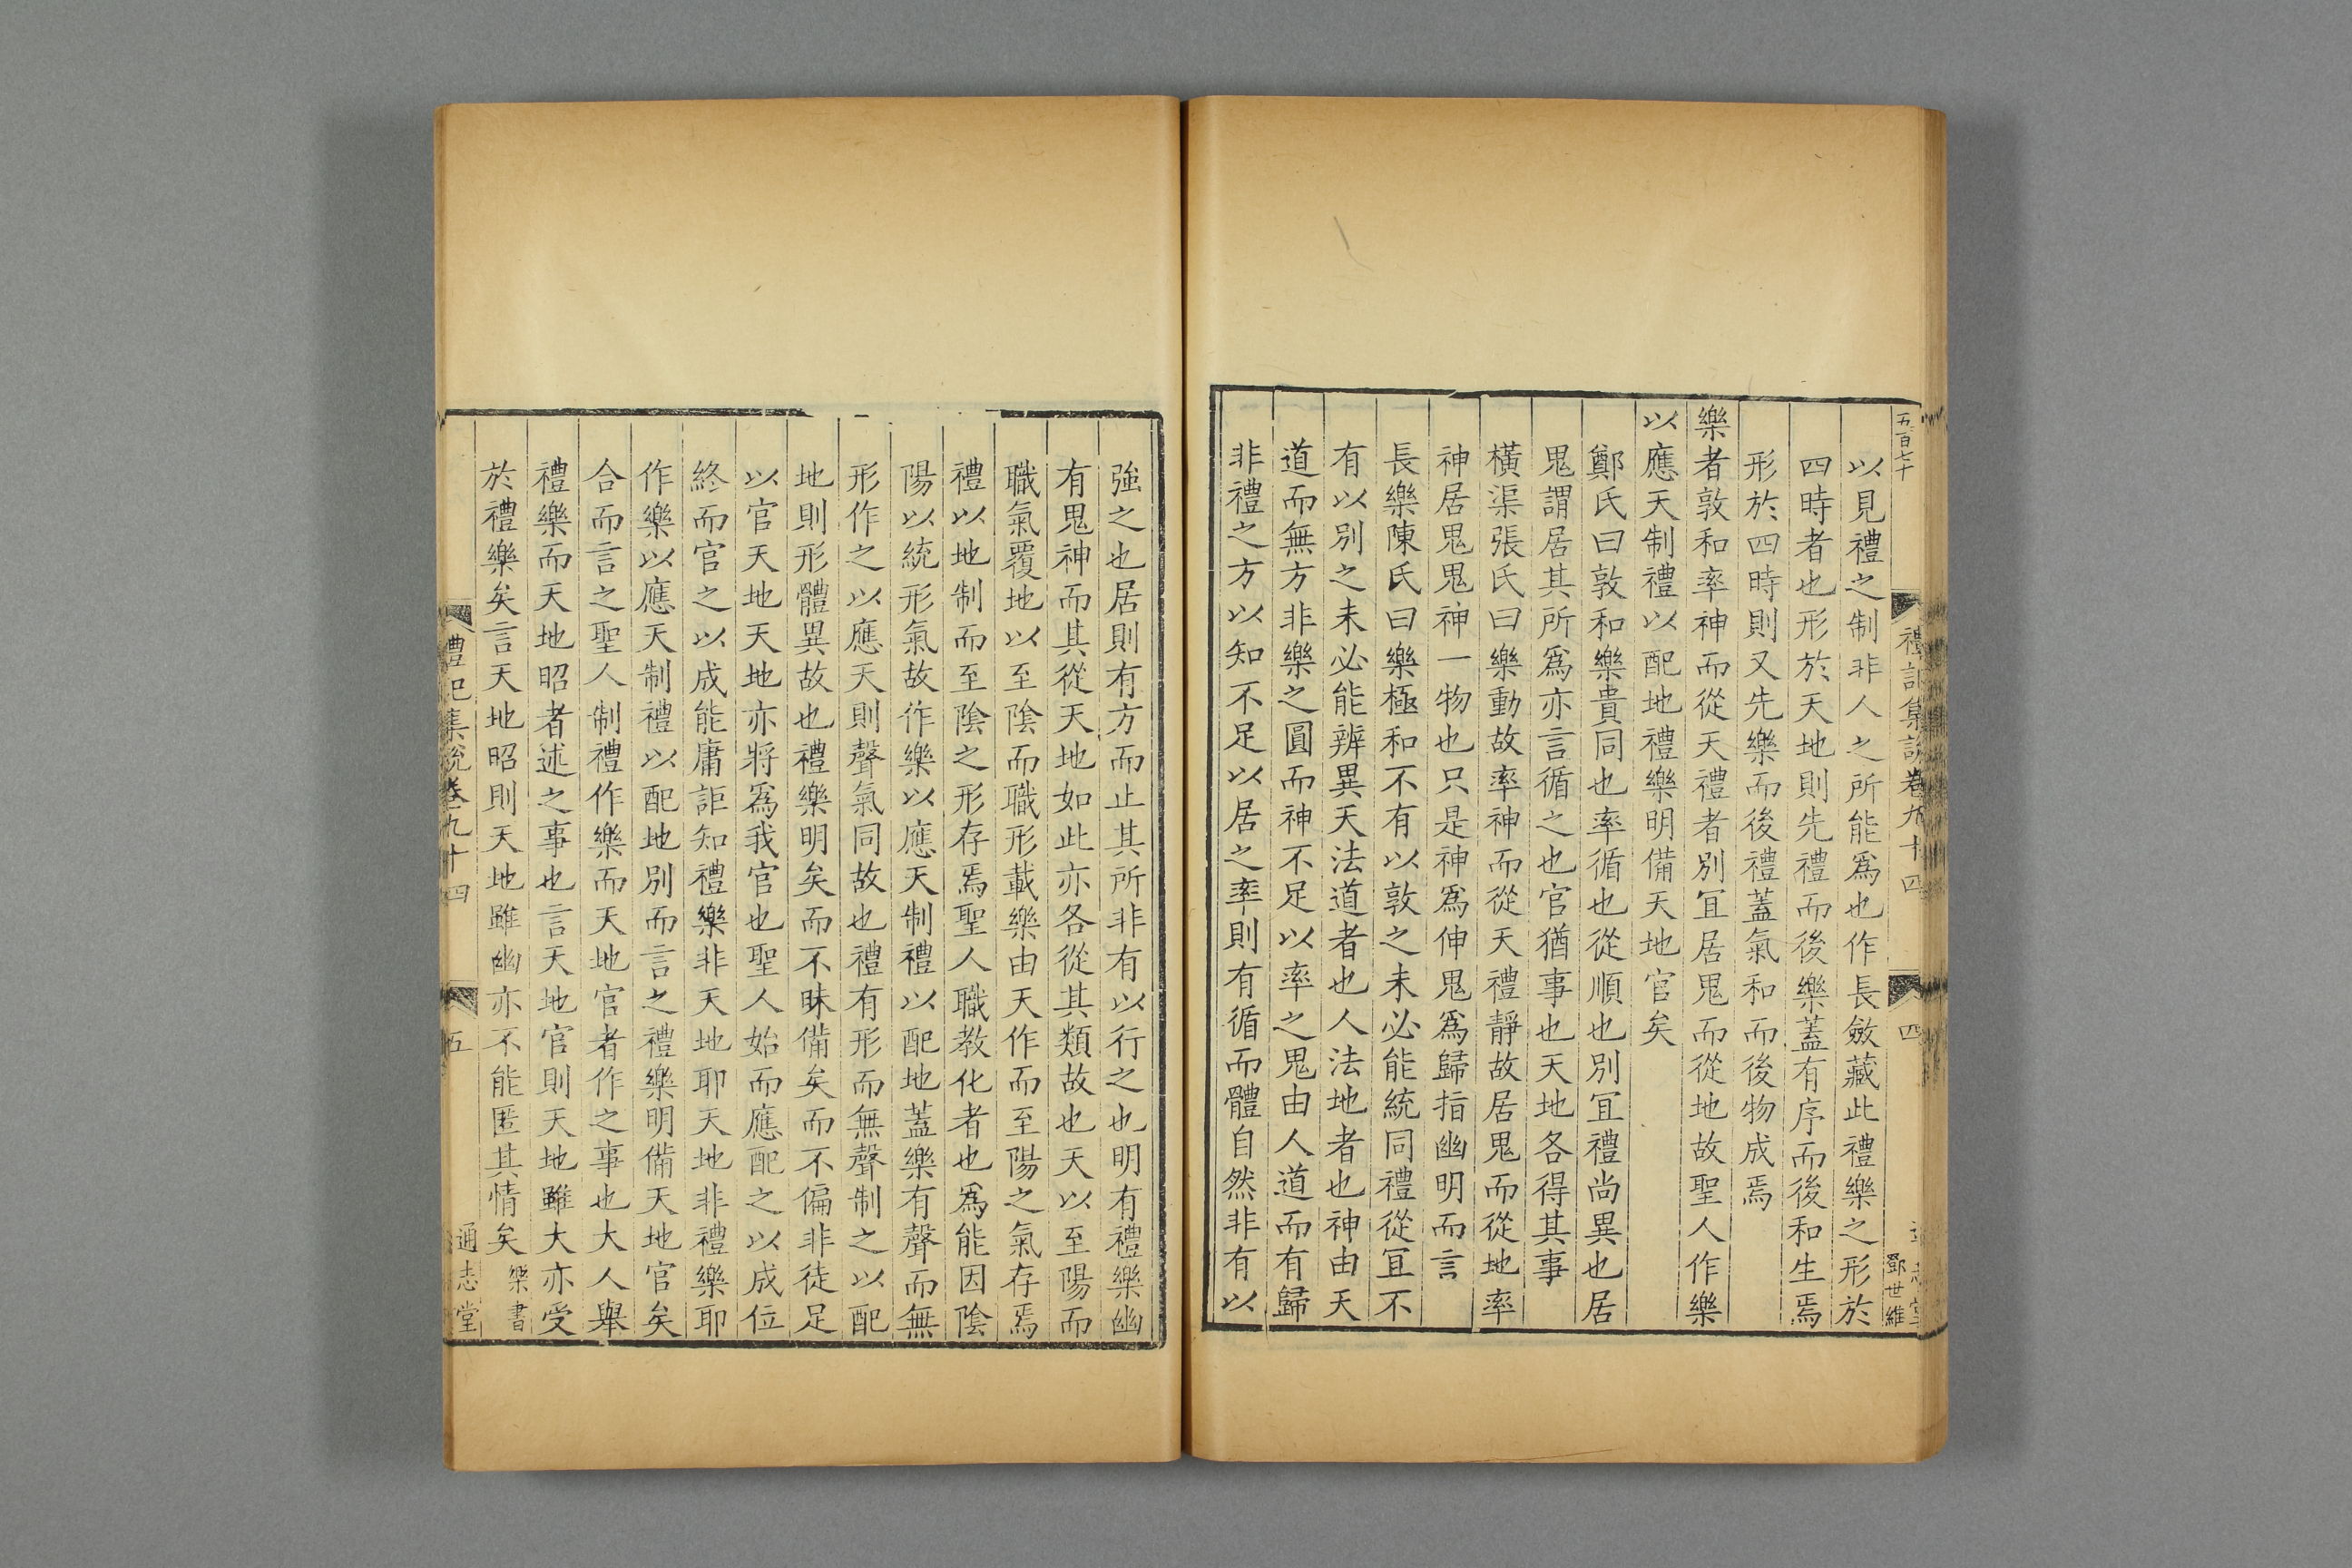 五百七十
禮記集說卷九十四
四
鄧世維
以見禮之制非人之所能爲也作長斂藏此禮樂之形於
四時者也形於天地則先禮而後樂蓋有序而後和生焉
形於四時則又先樂而後禮蓋氣和而後物成焉
樂者敦和率神而從天禮者別冝居鬼而從地故聖人作樂
以應天制禮以配地禮樂明備天地官矣
鄭氏曰敦和樂貴同也率循也從順也別冝禮尚異也居
鬼謂居其所爲亦言循之也官猶事也天地各得其事
橫渠張氏曰樂動故率神而從天禮靜故居鬼而從地率
神居鬼鬼神一物也只是神爲伸鬼爲歸指幽明而言
長樂陳氏曰樂極和不有以敦之未必能統同禮從冝不
有以別之未必能辨異天法道者也人法地者也神由天
道而無方非樂之圓而神不足以率之鬼由人道而有歸
非禮之方以知不足以居之率則有循而體自然非有以
強之也居則有方而止其所非有以行之也明有禮樂幽
有鬼神而其從天地如此亦各從其類故也天以至陽而
職氣覆地以至陰而職形載樂由天作而至陽之氣存焉
禮以地制而至陰之形存焉聖人職教化者也爲能因陰
陽以統形氣故作樂以應天制禮以配地蓋樂有聲而無
形作之以應天則聲氣同故也禮有形而無聲制之以配
地則形體異故也禮樂明矣而不昧備矣而不偏非徒足
以官天地天地亦將爲我官也聖人始而應配之以成位
終而官之以成能庸詎知禮樂非天地耶天地非禮樂耶
作樂以應天制禮以配地別而言之禮樂明備天地官矣
合而言之聖人制禮作樂而天地官者作之事也大人舉
禮樂而天地昭者述之事也言天地官則天地雖大亦受
於禮樂矣言天地昭則天地雖幽亦不能匿其情矣 樂書
禮記集說卷九十四
五
通志堂